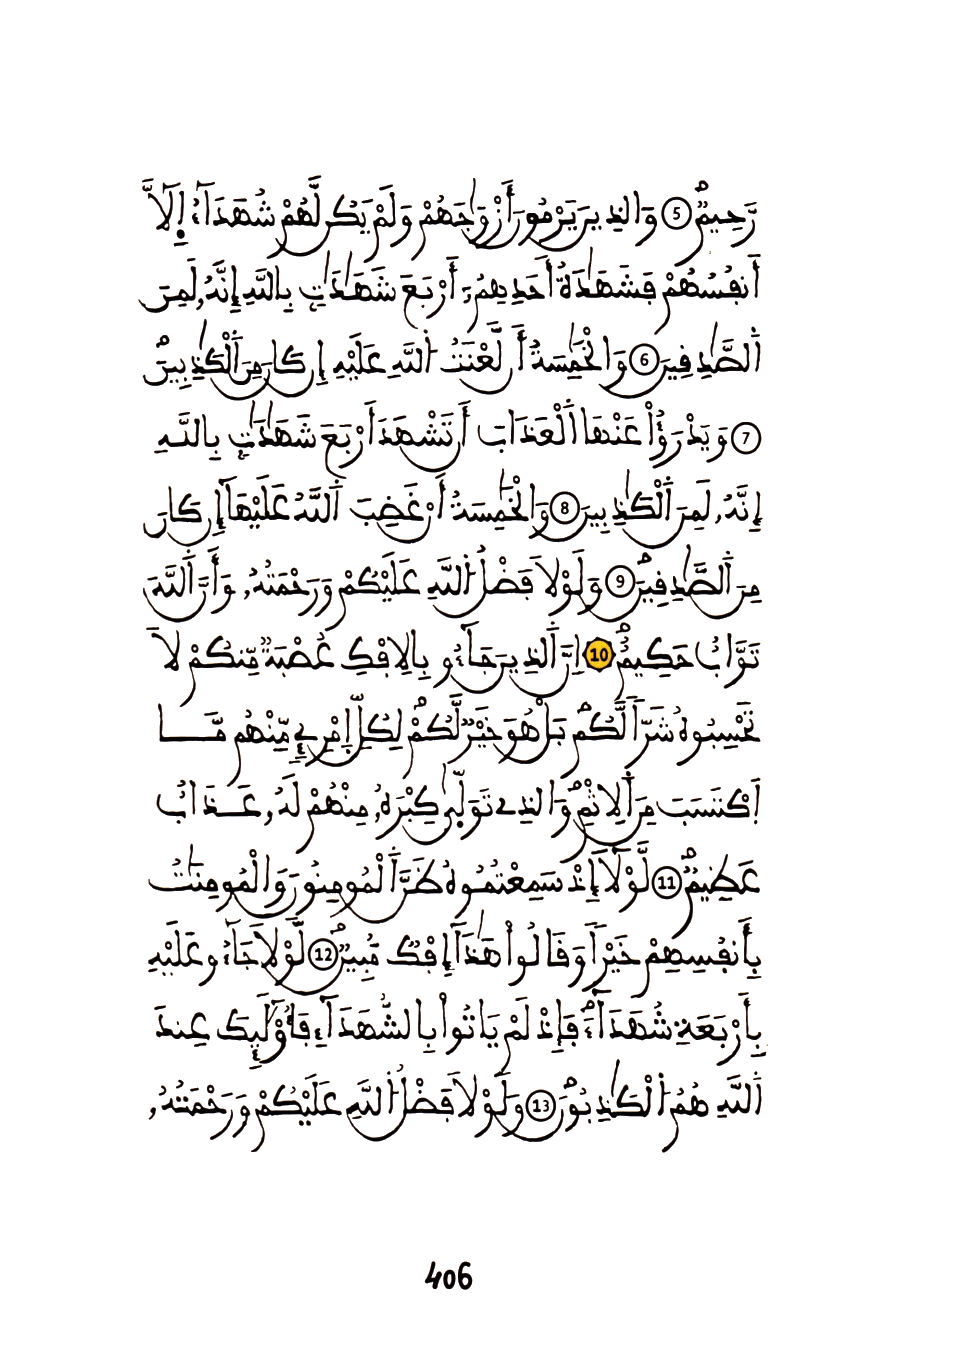 رَّحِيمٌ 5 وَالذِينَ يَرْمُونَ أَزْوَٰجَهُمْ وَلَمْ يَكُن لَّهُمْ شُهَدَآءُ اِ۪لَّآ
أَنفُسُهُمْ فَشَهَٰدَةُ أَحَدِهِمُۥٓ أَرْبَعَ شَهَٰدَٰتِۢ بِاللَّهِ إِنَّهُۥ لَمِنَ
اَ۬لصَّٰدِقِينَ 6 وَالْخَٰمِسَةُ أَن لَّعْنَتُ اُ۬للَّهِ عَلَيْهِ إِن كَانَ مِنَ اَ۬لْكَٰذِبِينَ
7 وَيَدْرَؤُاْ عَنْهَا اَ۬لْعَذَابَ أَن تَشْهَدَ أَرْبَعَ شَهَٰدَٰتِۢ بِاللَّهِ
إِنَّهُۥ لَمِنَ اَ۬لْكَٰذِبِينَ 8 وَالْخَٰمِسَةُ أَنْ غَضِبَ اَ۬للَّهُ عَلَيْهَآ إِن كَانَ
مِنَ اَ۬لصَّٰدِقِينَ 9 وَلَوْلَا فَضْلُ اُ۬للَّهِ عَلَيْكُمْ وَرَحْمَتُهُۥ وَأَنَّ اَ۬للَّهَ
تَوَّابٌ حَكِيمٌ 10 اِنَّ اَ۬لذِينَ جَآءُو بِالِافْكِ عُصْبَةٌ مِّنكُمْ لَا
تَحْسِبُوهُ شَرّاٗ لَّكُمۖ بَلْ هُوَ خَيْرٞ لَّكُمْۖ لِكُلِّ اِ۪مْرِےٕٖ مِّنْهُم مَّا
اَ۪كْتَسَبَ مِنَ اَ۬لِاثْمِۖ وَالذِے تَوَلَّيٰ كِبْرَهُۥ مِنْهُمْ لَهُۥ عَذَابٌ
عَظِيمٞ 11 لَّوْلَآ إِذْ سَمِعْتُمُوهُ ظَنَّ اَ۬لْمُومِنُونَ وَالْمُومِنَٰتُ
بِأَنفُسِهِمْ خَيْراٗ وَقَالُواْ هَٰذَآ إِفْكٞ مُّبِينٞ 12 لَّوْلَا جَآءُو عَلَيْهِ
بِأَرْبَعَةِ شُهَدَآءَۖ فَإِذْ لَمْ يَاتُواْ بِالشُّهَدَآءِ فَأُوْلَٰٓئِكَ عِندَ
اَ۬للَّهِ هُمُ اُ۬لْكَٰذِبُونَۖ 13 وَلَوْلَا فَضْلُ اُ۬للَّهِ عَلَيْكُمْ وَرَحْمَتُهُۥ
406